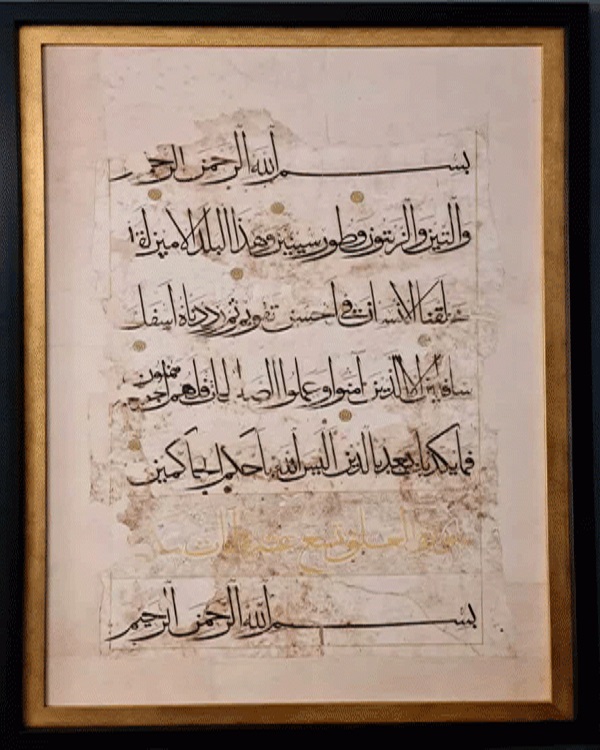 بسم الله الرحمن الرحيم
والتين والزيتون وطور سينين وهذا البلد الامين لقد
خلقنا الانسان في احسن تقويم ثم رددناه اسفل
سافلين الا الذين آمنوا وعملوا الصالحات فلهم اجر غير ممنون
فما يكذبك بعد بالدين اليس الله باحكم الحاكمين
سورة العلق تسع عشرة آيات
بسم الله الرحمن الرحيم